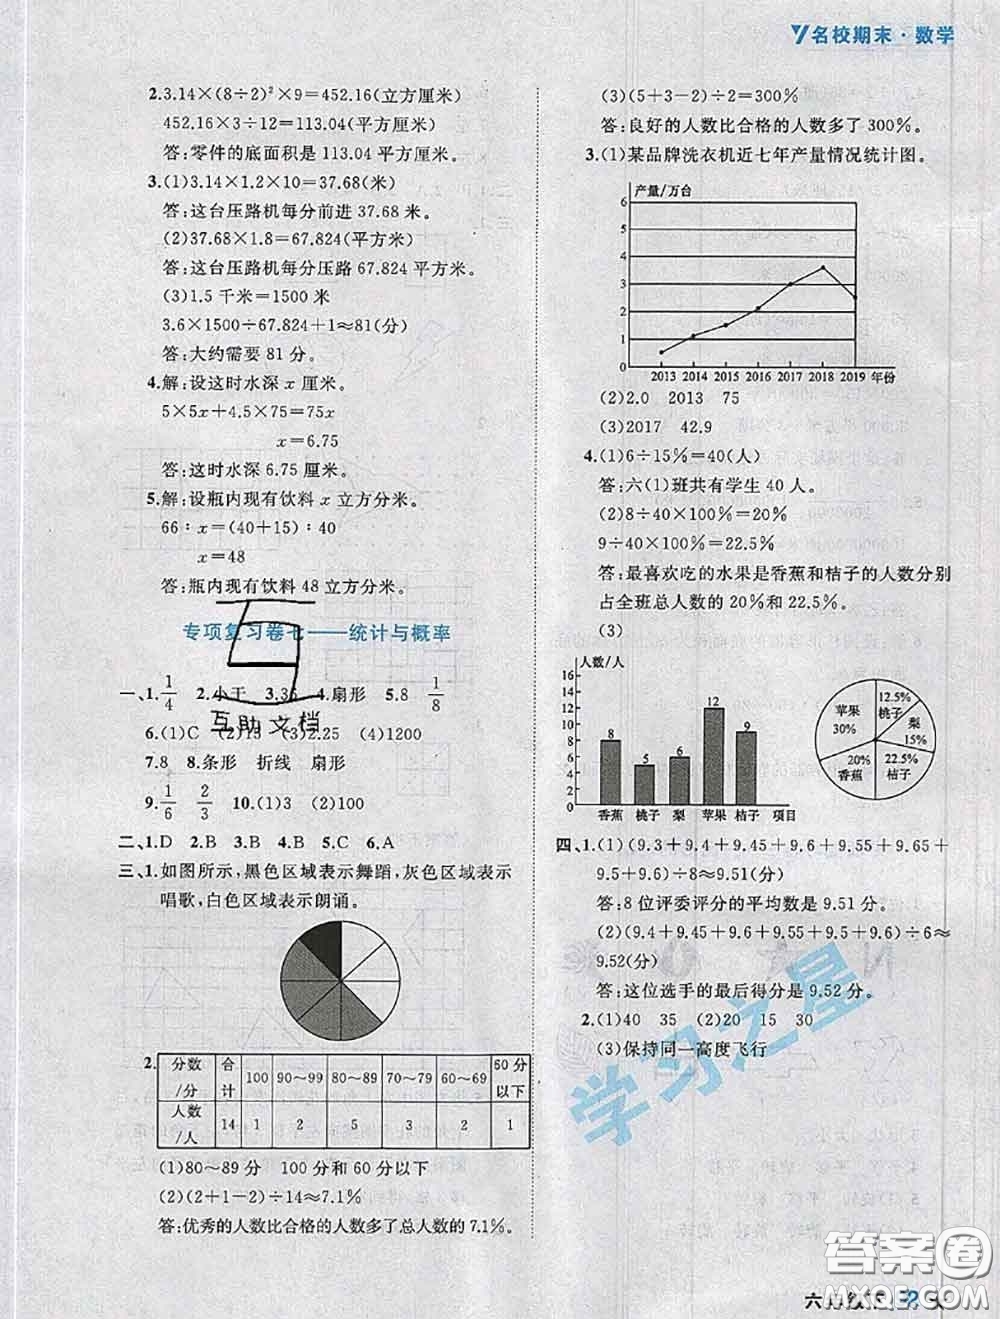 名校期末·数学
2.3.14×(8÷2)²×9=452.16(立方厘米)
452.16×3÷12=113.04(平方厘米)
答:零件的底面积是113.04平方厘米。
3.(1)3.14×1.2×10=37.68(米)
答:这台压路机每分前进37.68米。
(2)37.68×1.8=67.824(平方米)
答:这台压路机每分压路67.824平方米。
(3)1.5千米=1500米
3.6×1500÷67.824+1≈81(分)
答:大约需要81分。
4.解:设这时水深x厘米。
5×5x+4.5×75=75x
x=6.75
答:这时水深6.75厘米。
5.解:设瓶内现有饮料x立方分米。
66:x=(40+15):40
x=48
答:瓶内现有饮料48立方分米。
专项复习卷七——统计与概率
一、1.1/4 2.小于 3.36 4.扇形 5.8 1/8
6.(1)C (2)15 (3)2.25 (4)1200
7.8 8.条形 折线 扇形
9.1/6 2/3 10.(1)3 (2)100
二、1.D 2.B 3.B 4.B 5.C 6.A
三、1.如图所示,黑色区域表示舞蹈,灰色区域表示
唱歌,白色区域表示朗诵。
2.
分数/分 合计 100 90~99 80~89 70~79 60~69 60分以下
人数/人 14 1 2 5 3 2 1
(1)80~89分 100分和60分以下
(2)(2+1-2)÷14≈7.1%
答:优秀的人数比合格的人数多了总人数的7.1%。
(3)(5+3-2)÷2=300%
答:良好的人数比合格的人数多了300%。
3.(1)某品牌洗衣机近七年产量情况统计图。
产量/万台
6
5
4
3
2
1
0
2013 2014 2015 2016 2017 2018 2019 年份
(2)2.0 2013 75
(3)2017 42.9
4.(1)6÷15%=40(人)
答:六(1)班共有学生40人。
(2)8÷40×100%=20%
9÷40×100%=22.5%
答:最喜欢吃的水果是香蕉和桔子的人数分别
占全班总人数的20%和22.5%。
(3)
人数/人
16
14
12
10
8
6
4
2
0
8 5 6 12 9
香蕉 桃子 梨 苹果 桔子 项目
苹果 30%
12.5% 桃子
梨 15%
20% 香蕉
22.5% 桔子
四、1.(1)(9.3+9.4+9.45+9.6+9.55+9.65+
9.5+9.6)÷8≈9.51(分)
答:8位评委评分的平均数是9.51分。
(2)(9.4+9.45+9.6+9.55+9.5+9.6)÷6≈
9.52(分)
答:这位选手的最后得分是9.52分。
2.(1)40 35 (2)20 15 30
(3)保持同一高度飞行
互助文档
学习之星
答案圈
MXQE.COM